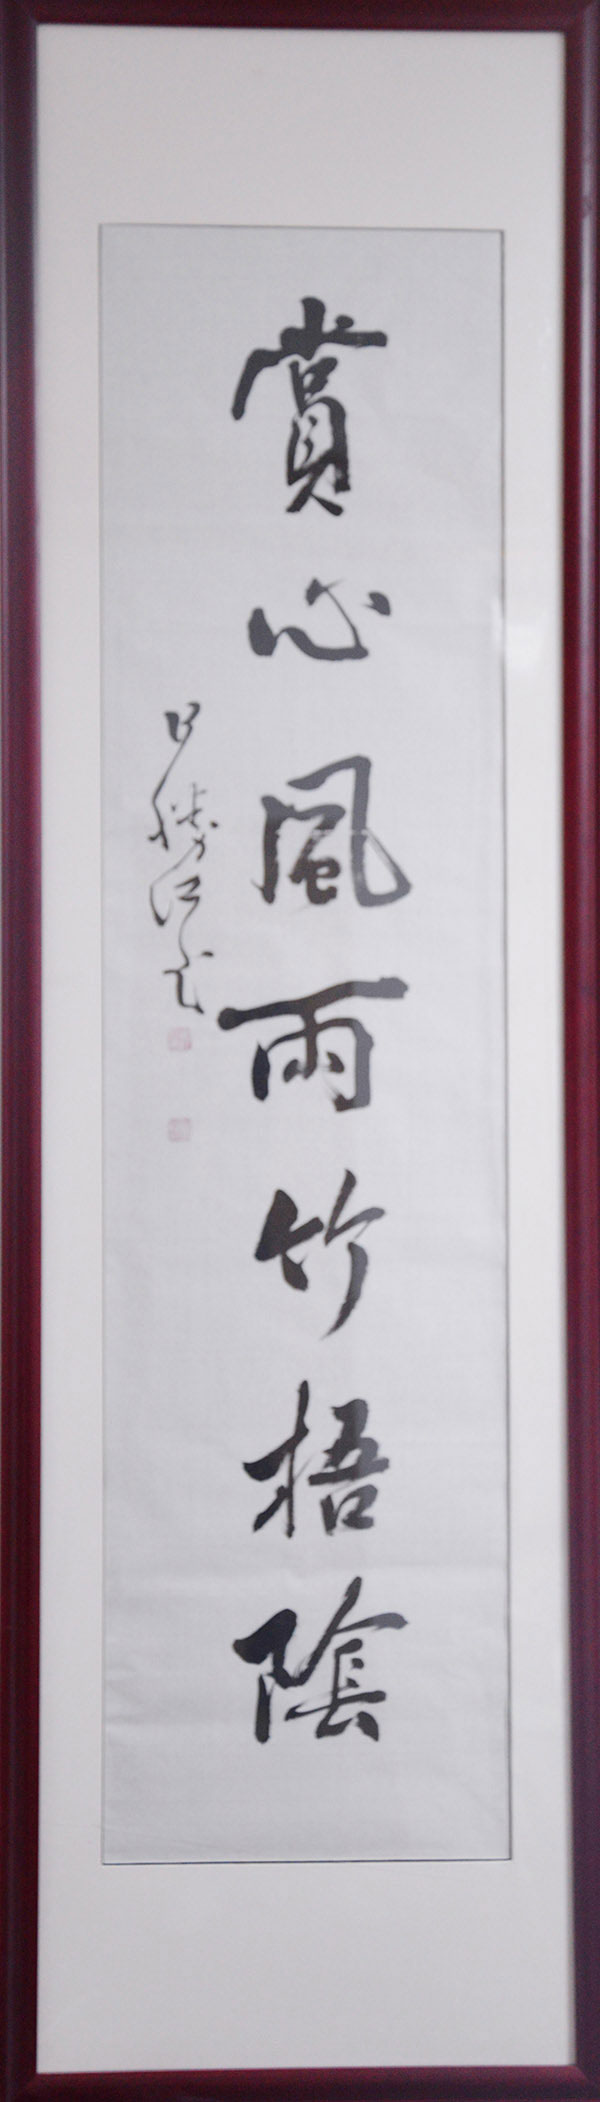 賞心風雨竹梧陰